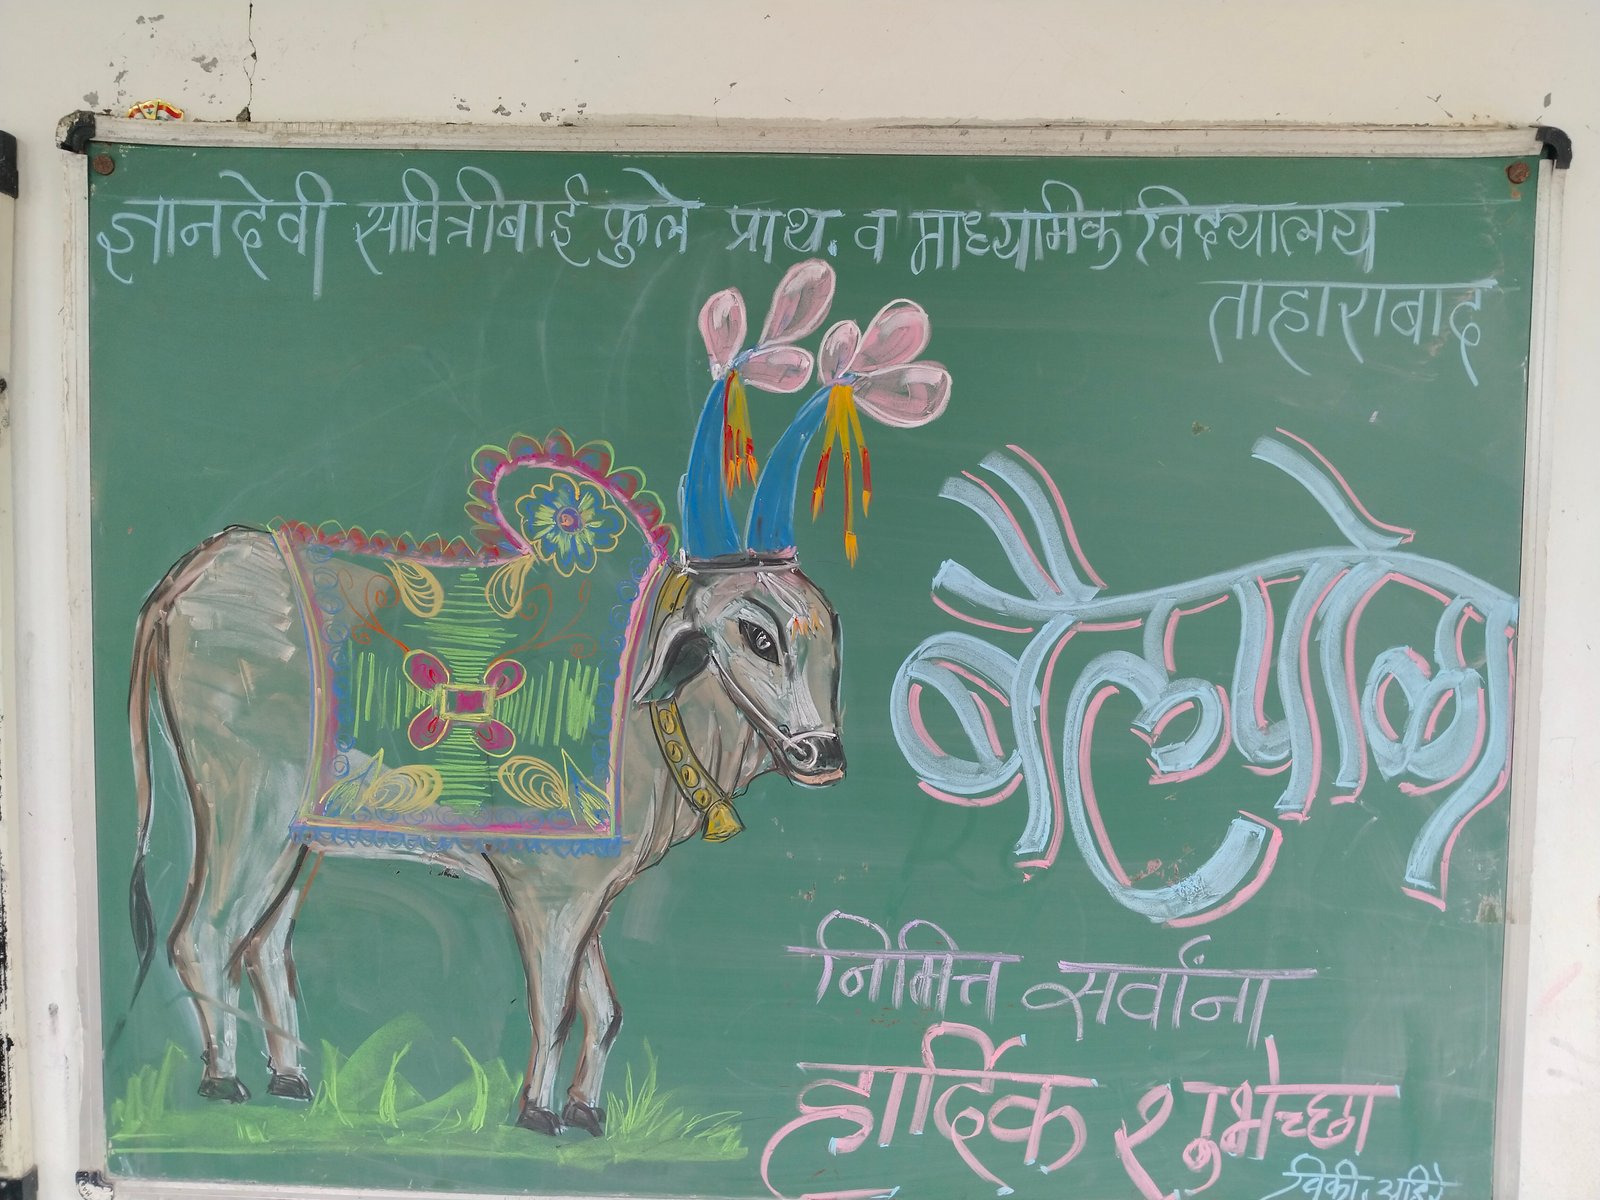 ज्ञानदेवी सावित्रीबाई फुले प्राथ. व माध्यमिक विद्यालय
ताहाराबाद
बैलपोळा
निमित्त सर्वांना
हार्दिक शुभेच्छा
विकी. अहिरे